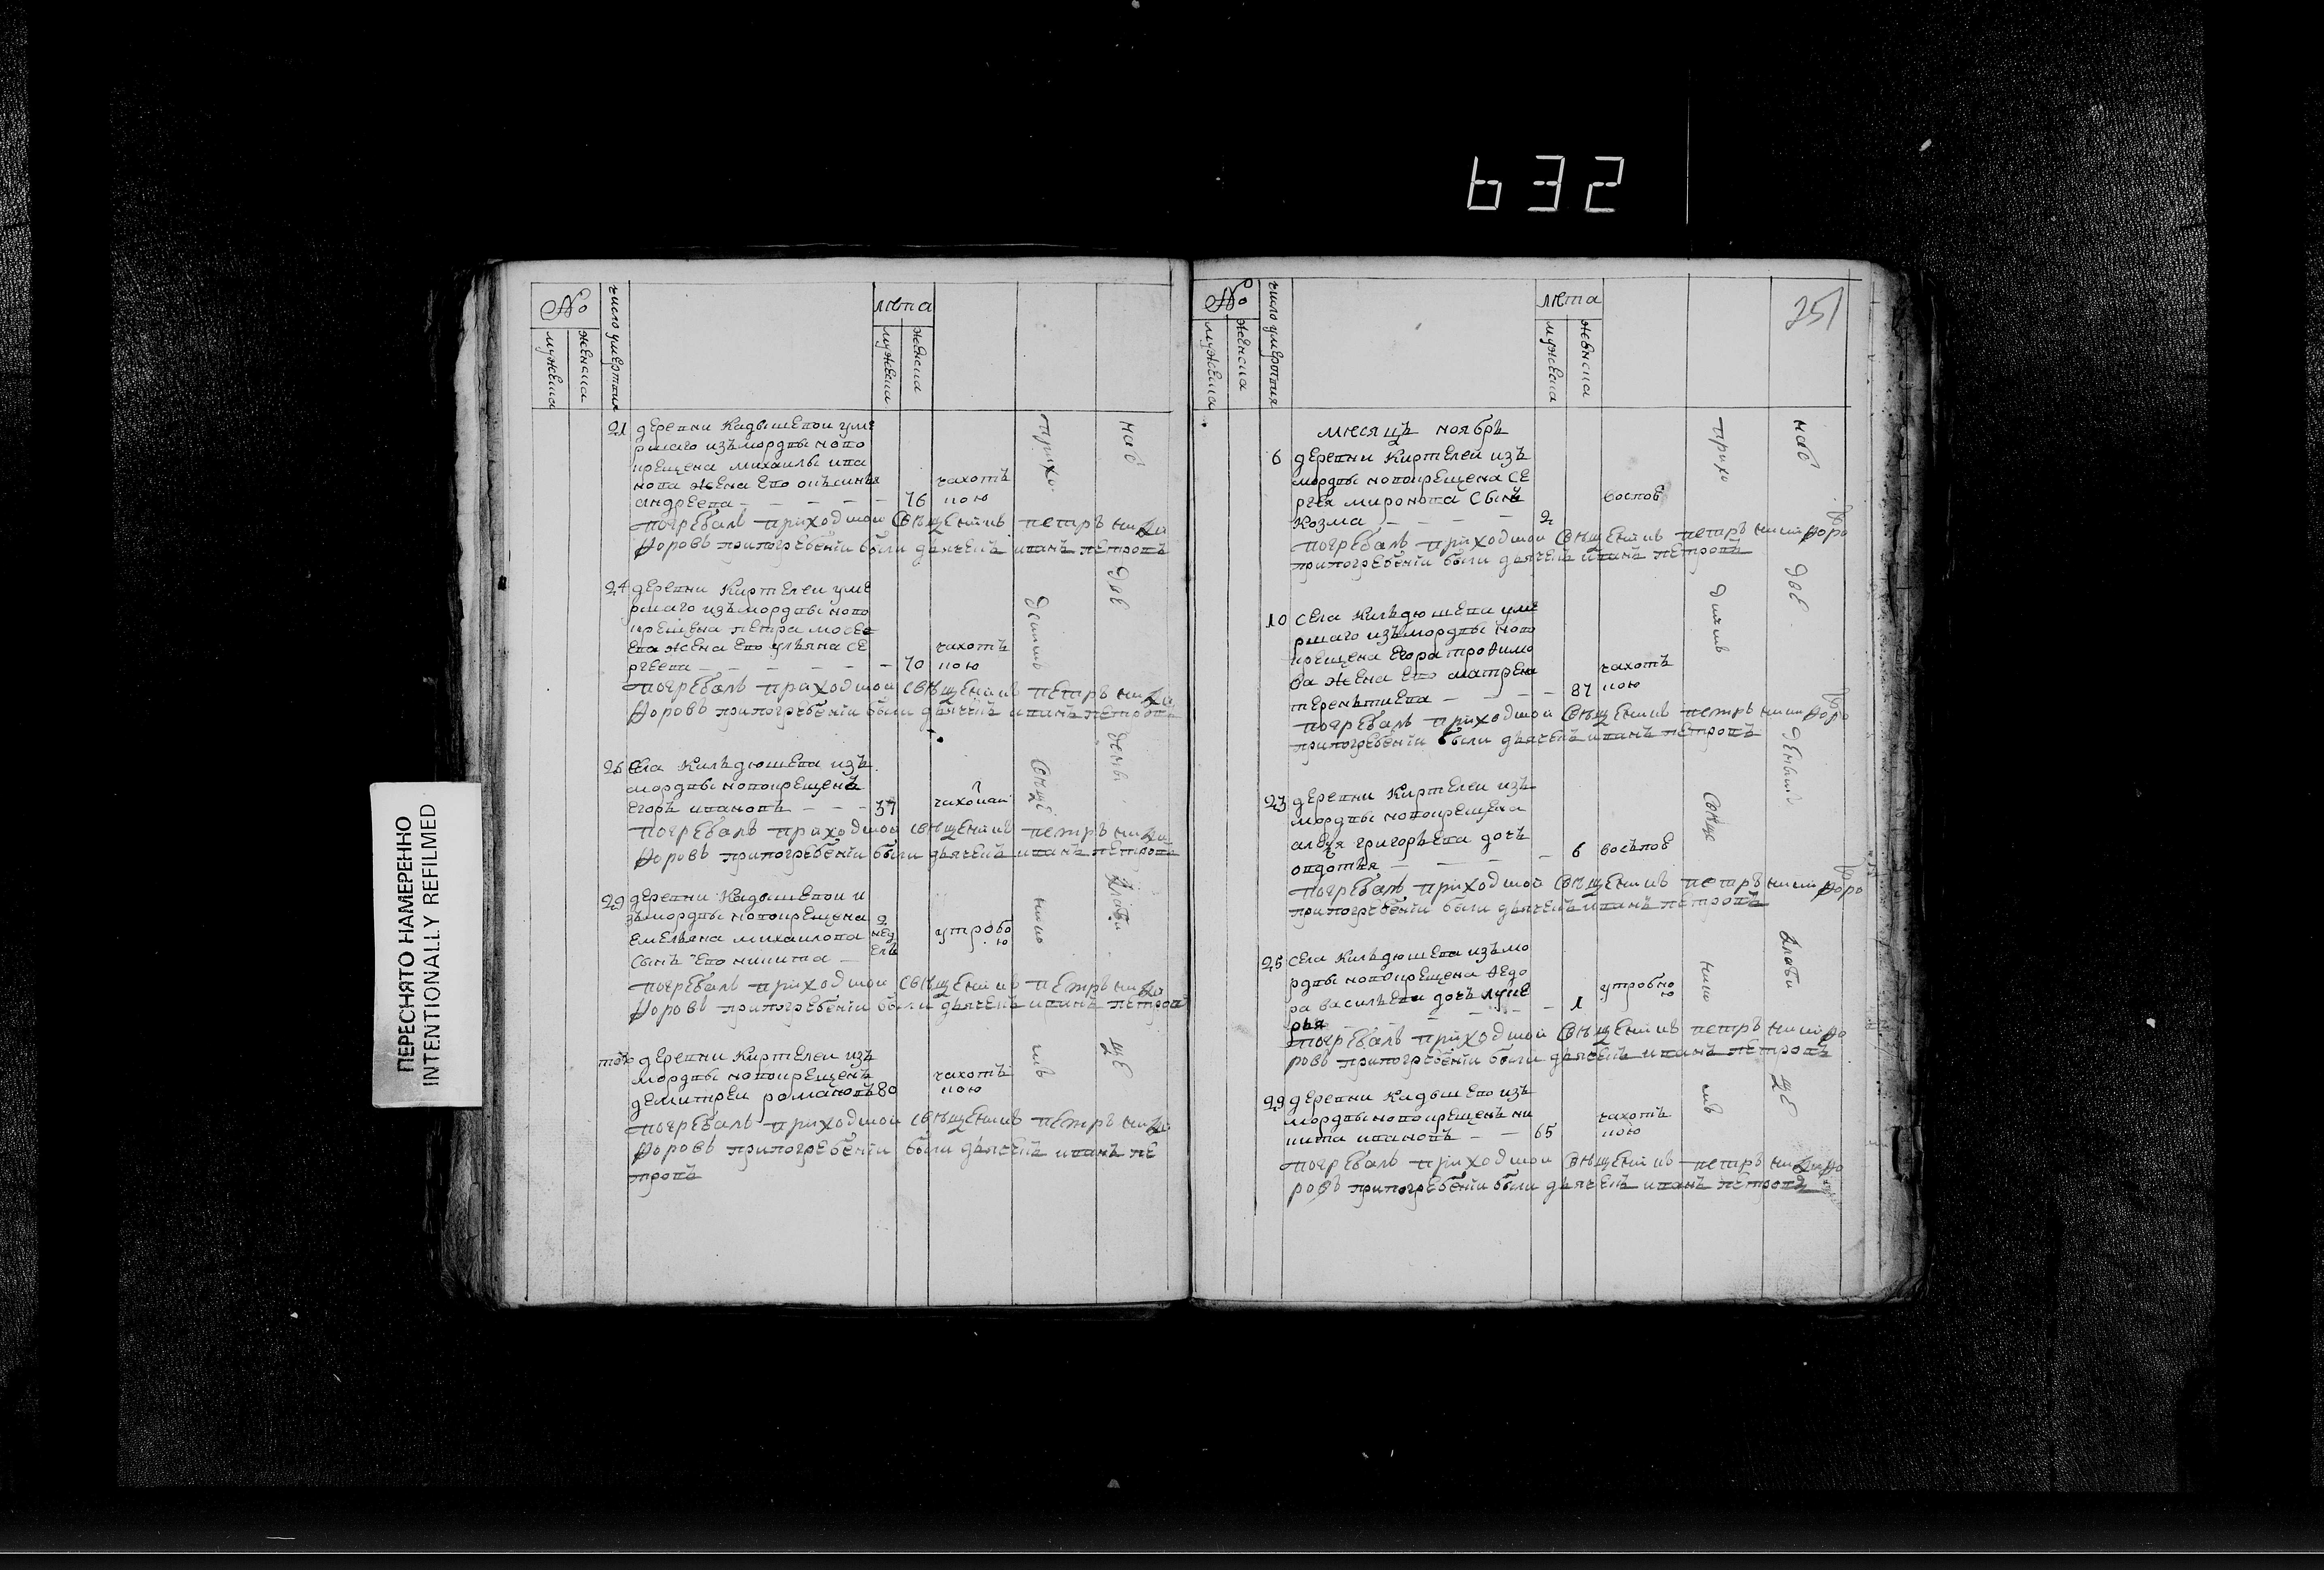 632
ПЕРЕСНЯТО НАМЕРЕННО
INTENTIONALLY REFILMED
№
мужеска
женска
число умертвия
лѣта
мужеска
женска
21 деревни Кадышевои уме
ршаго изъ мордвы ново
крещена михаилы ива
нова жена его
андреева — — — — 76 чахотъ
кою
погребалъ приходской священникъ петръ ники
ѳоровъ при погребенїи были дьячекъ иванъ петровъ
24 деревни Киртелеи уме
ршаго изъ мордвы ново
крещена петра мосее
ва жена его ульяна се
ргеева — — — — — 70 чахотъ
кою
погребалъ приходской священникъ петръ ники
ѳоровъ при погребенїи были дьячекъ иванъ петровъ
26 села Кильдюшева изъ
мордвы новокрещенъ
егоръ ивановъ — — — 37
погребалъ приходской священникъ петръ ники
ѳоровъ при погребенїи были дьячекъ иванъ петровъ
29 деревни Кадышевои и
зъ мордвы новокрещена
емельяна михаилова
сынъ его никита — 2 нед
ель утробо
ю
погребалъ приходской священникъ петръ ники
ѳоровъ при погребенїи были дьячекъ иванъ петров
тож деревни Киртелеи изъ
мордвы новокрещенъ
демитреи романовъ 80 чахотъ
кою
погребалъ приходской священникъ петръ ники
ѳоровъ при погребенїи были дьячекъ иванъ пе
тровъ
прихо
священ
наб
дов
№
мужеска
женска
число умертвия
лѣта
мужеска
женска
251
месяцъ ноябрь
6 деревни Киртелеи изъ
мордвы новокрещена се
ргея миронова сынъ
козма — — — — 2 воспо
погребалъ приходской священникъ петръ никиѳоро
въ
при погребенїи были дьячекъ иванъ петровъ
10 села Кильдюшева уме
ршаго изъ мордвы ново
крещена егора троѳимо
ва жена его матрена
терентиева — — — — 87 чахотъ
кою
погребалъ приходской священникъ петръ никиѳоро
въ
при погребенїи были дьячекъ иванъ петровъ
23 деревни Киртелеи изъ
мордвы новокрещена
григорьева дочь
овдотья — — — — 6
погребалъ приходской священникъ петръ никиѳоро
въ
при погребенїи были дьячекъ иванъ петровъ
25 села Кильдюшева изъ мо
рдвы новокрещена ѳедо
ра васильева дочь луке
рья — — — — 1 утробно
ю
погребалъ приходской священникъ петръ никиѳо
ровъ при погребенїи были дьячекъ иванъ петровъ
29 деревни Кадышево изъ
мордвы новокрещенъ ни
кита ивановъ — — 65 чахотъ
кою
погребалъ приходской священникъ петръ никиѳо
ровъ при погребенїи были дьячекъ иванъ петровъ
прихо
свяще
наб
дов